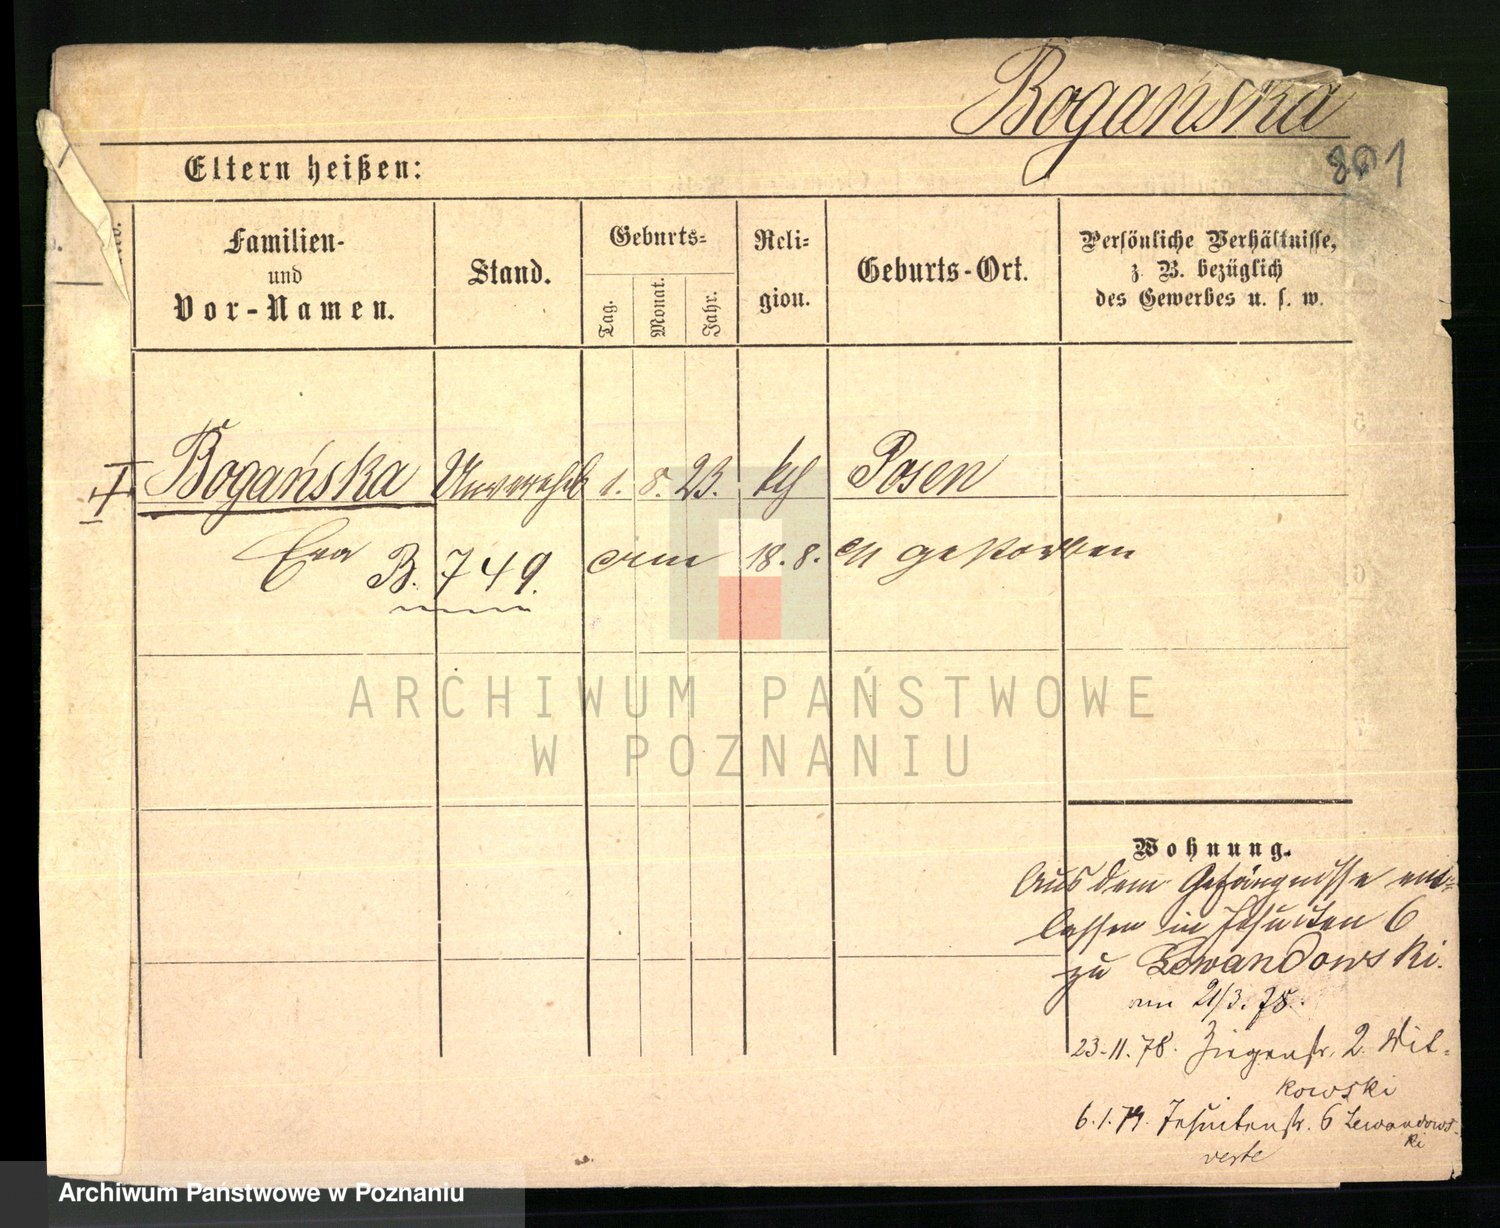 Bogańska
801
Eltern heißen:
Familien-
und
Vor-Namen.
Stand.
Geburts-
Tag.
Monat.
Jahr.
Reli-
gion.
Geburts-Ort.
Persönliche Verhältnisse,
z. B. bezüglich
des Gewerbes u. s. w.
I Bogańska Unverehel. 1. 8. 23. kth Posen
Eva B. 749. am 18.8. gestorben
ARCHIWUM PAŃSTWOWE
W POZNANIU
Wohnung.
Aus dem Gefängnisse ent-
lassen in Jesuiten 6
zu Lewandowski.
am 21/3. 78.
23.11.78. Ziegenstr. 2 Wit-
kowski
6.1.79. Jesuitenstr. 6 Lewandows-
ki
Archiwum Państwowe w Poznaniu